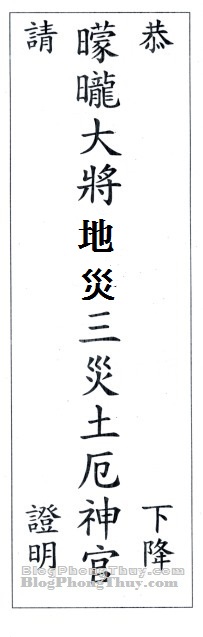 恭 下降
曚曨大將地災三災土厄神官
請 證明
BlogPhongThuy.com
BlogPhongThuy.com